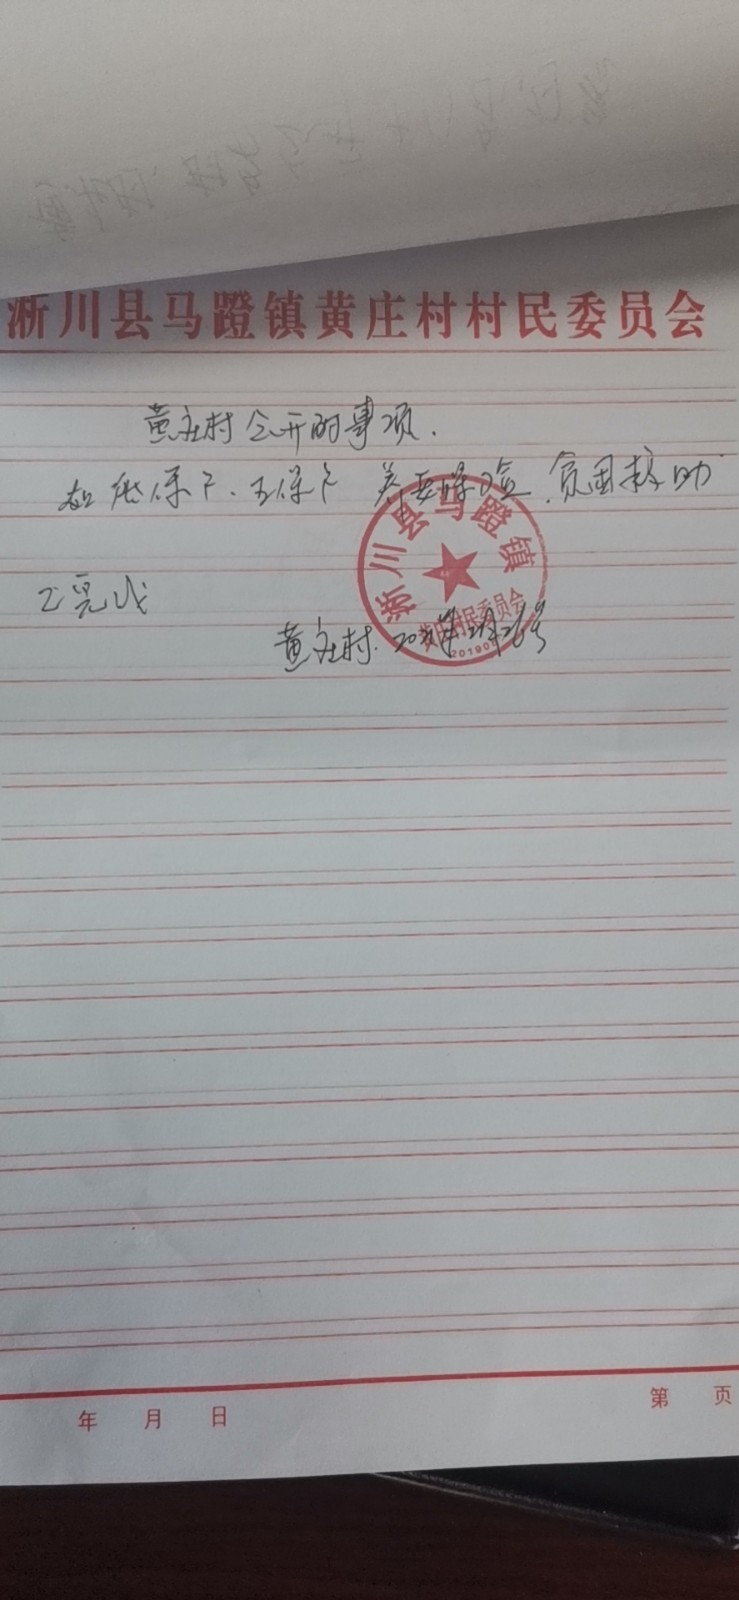 淅川县马蹬镇黄庄村村民委员会
黄庄村公开的事项.
如低保户、五保户 养老保险.贫困救助
已完成
淅川县马蹬镇
黄庄村民委员会
黄庄村.
年 月 日
第 页